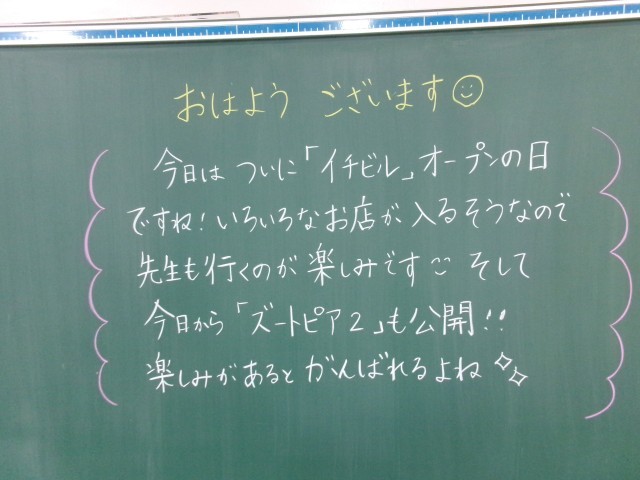 おはよう ございます
今日は ついに「イチビル」オープンの日
ですね!いろいろなお店が入るそうなので
先生も行くのが楽しみです そして
今日から「ズートピア2」も公開!!
楽しみがあると がんばれるよね